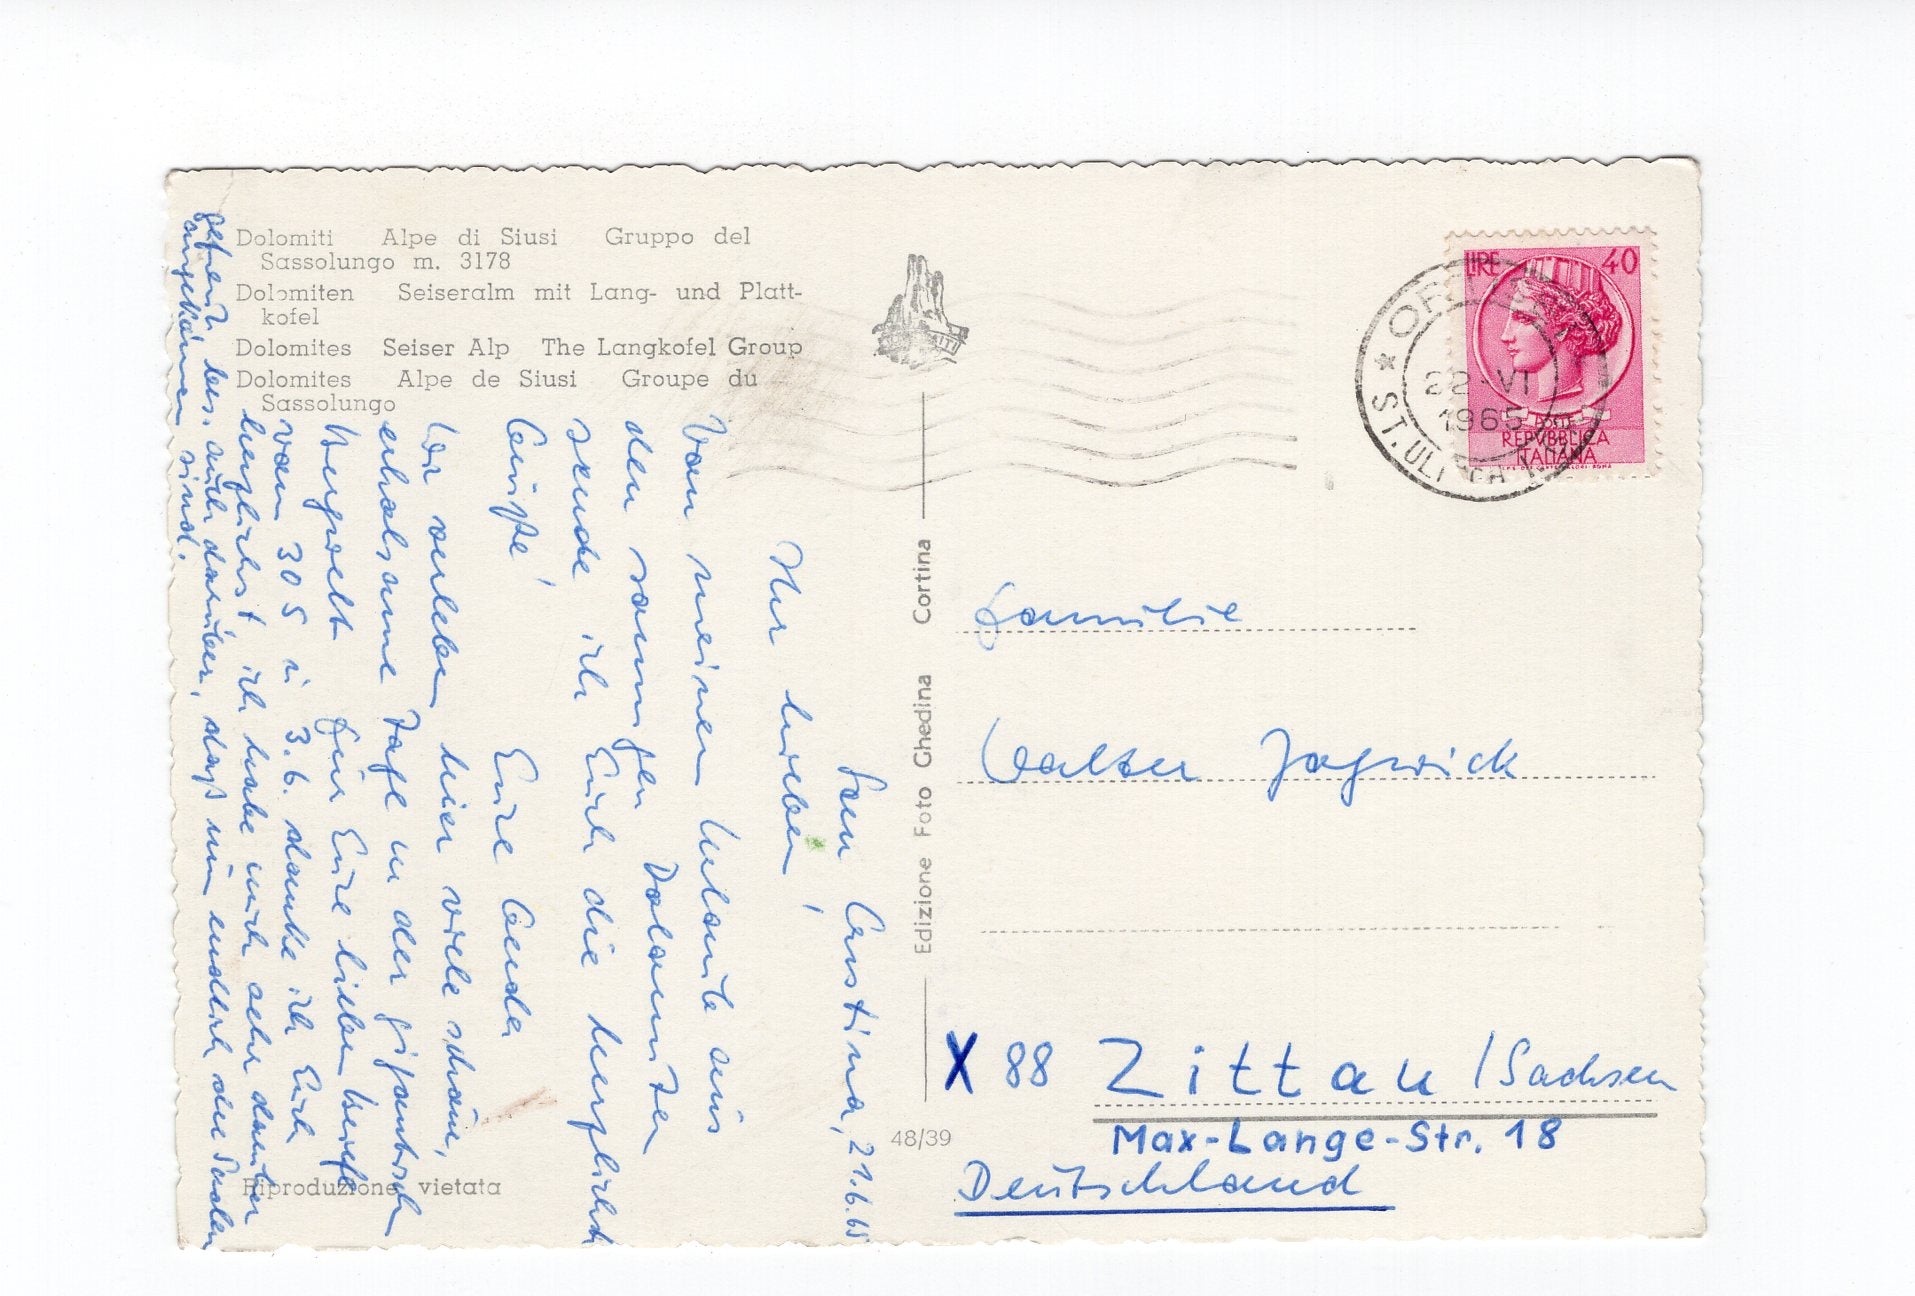 Dolomiti Alpe di Siusi Gruppo del
Sassolungo m. 3178
Dolomiten Seiseralm mit Lang- und Platt-
kofel
Dolomites Seiser Alp The Langkofel Group
Dolomites Alpe de Siusi Groupe du
Sassolungo
San Cristina, 21.6.65
Ihr Lieben!
Von meinem Urlaub aus
den sonnigen Dolomiten
sende ich Euch die herzlichst
Grüße!
Eure Gerda
Wir verleben hier viele schöne,
erholsame Tage in der gigantisch
Bergwelt. Für Eure lieben Briefe
vom 30 5 u 3.6. danke ich Euch
herzlichst ich habe mich sehr darüber
gefreut bes. auch darüber, daß nun endlich die
angekommen sind.
Riproduzione vietata
Edizione Foto Ghedina Cortina
48/39
LIRE 40
POSTE
REPVBBLICA
ITALIANA
ORTISEI
22-VI
1965
ST. ULRICH
Familie
Walter
X 88 Zittau / Sachsen
Max-Lange-Str. 18
Deutschland